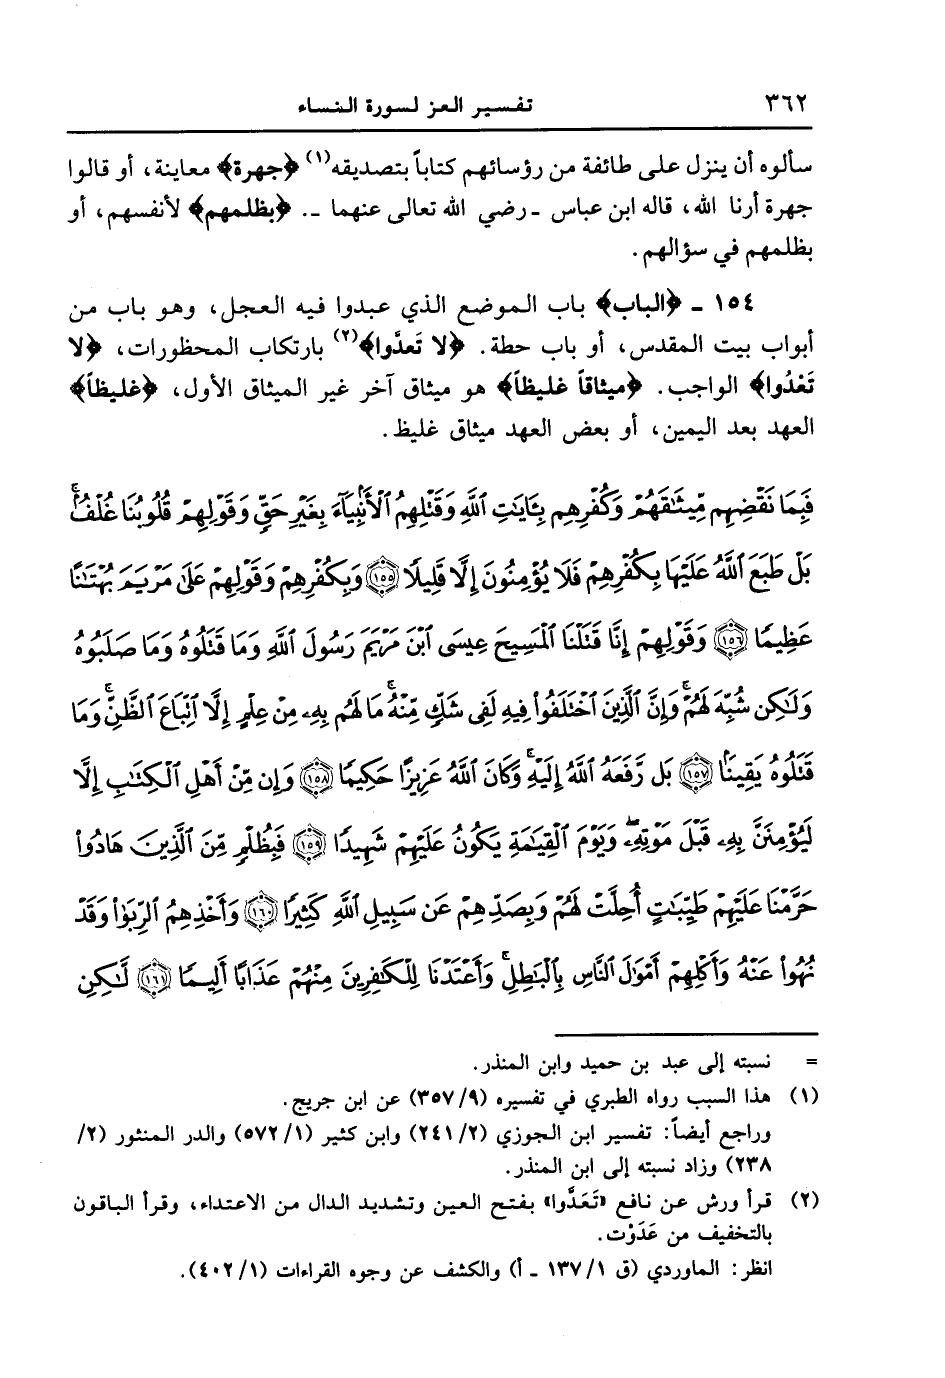 ٣٦٢ تفسير العز لسورة النساء
سألوه أن ينزل على طائفة من رؤسائهم كتاباً بتصديقه(١) ﴿جهرة﴾ معاينة، أو قالوا
جهرة أرنا الله، قاله ابن عباس ـ رضي الله تعالى عنهما ـ. ﴿بظلمهم﴾ لأنفسهم، أو
بظلمهم في سؤالهم.
١٥٤ ـ ﴿الباب﴾ باب الموضع الذي عبدوا فيه العجل، وهو باب من
أبواب بيت المقدس، أو باب حطة. ﴿لا تَعدَّوا﴾(٢) بارتكاب المحظورات، ﴿لا
تَعْدُوا﴾ الواجب. ﴿ميثاقاً غليظاً﴾ هو ميثاق آخر غير الميثاق الأول، ﴿غليظاً﴾
العهد بعد اليمين، أو بعض العهد ميثاق غليظ.
فَبِمَا نَقْضِهِم مِّيثَٰقَهُمْ وَكُفْرِهِم بِـَٔايَٰتِ ٱللَّهِ وَقَتْلِهِمُ ٱلْأَنۢبِيَآءَ بِغَيْرِ حَقٍّ وَقَوْلِهِمْ قُلُوبُنَا غُلْفٌۢ ۚ
بَلْ طَبَعَ ٱللَّهُ عَلَيْهَا بِكُفْرِهِمْ فَلَا يُؤْمِنُونَ إِلَّا قَلِيلًا ١٥٥ وَبِكُفْرِهِمْ وَقَوْلِهِمْ عَلَىٰ مَرْيَمَ بُهْتَٰنًا
عَظِيمًا ١٥٦ وَقَوْلِهِمْ إِنَّا قَتَلْنَا ٱلْمَسِيحَ عِيسَى ٱبْنَ مَرْيَمَ رَسُولَ ٱللَّهِ وَمَا قَتَلُوهُ وَمَا صَلَبُوهُ
وَلَٰكِن شُبِّهَ لَهُمْ ۚ وَإِنَّ ٱلَّذِينَ ٱخْتَلَفُوا۟ فِيهِ لَفِى شَكٍّ مِّنْهُ ۚ مَا لَهُم بِهِۦ مِنْ عِلْمٍ إِلَّا ٱتِّبَاعَ ٱلظَّنِّ ۚ وَمَا
قَتَلُوهُ يَقِينًۢا ١٥٧ بَل رَّفَعَهُ ٱللَّهُ إِلَيْهِ ۚ وَكَانَ ٱللَّهُ عَزِيزًا حَكِيمًا ١٥٨ وَإِن مِّنْ أَهْلِ ٱلْكِتَٰبِ إِلَّا
لَيُؤْمِنَنَّ بِهِۦ قَبْلَ مَوْتِهِۦ ۖ وَيَوْمَ ٱلْقِيَٰمَةِ يَكُونُ عَلَيْهِمْ شَهِيدًا ١٥٩ فَبِظُلْمٍ مِّنَ ٱلَّذِينَ هَادُوا۟
حَرَّمْنَا عَلَيْهِمْ طَيِّبَٰتٍ أُحِلَّتْ لَهُمْ وَبِصَدِّهِمْ عَن سَبِيلِ ٱللَّهِ كَثِيرًا ١٦٠ وَأَخْذِهِمُ ٱلرِّبَوٰا۟ وَقَدْ
نُهُوا۟ عَنْهُ وَأَكْلِهِمْ أَمْوَٰلَ ٱلنَّاسِ بِٱلْبَٰطِلِ ۚ وَأَعْتَدْنَا لِلْكَٰفِرِينَ مِنْهُمْ عَذَابًا أَلِيمًا ١٦١ لَّٰكِنِ
= نسبته إلى عبد بن حميد وابن المنذر.
(١) هذا السبب رواه الطبري في تفسيره (٣٥٧/٩) عن ابن جريج.
وراجع أيضاً: تفسير ابن الجوزي (٢٤١/٢) وابن كثير (٥٧٢/١) والدر المنثور (٢/
٢٣٨) وزاد نسبته إلى ابن المنذر.
(٢) قرأ ورش عن نافع «تَعَدَّوا» بفتح العين وتشديد الدال من الاعتداء، وقرأ الباقون
بالتخفيف من عَدَوْت.
انظر: الماوردي (ق ١٣٧/١ ـ أ) والكشف عن وجوه القراءات (٤٠٢/١).